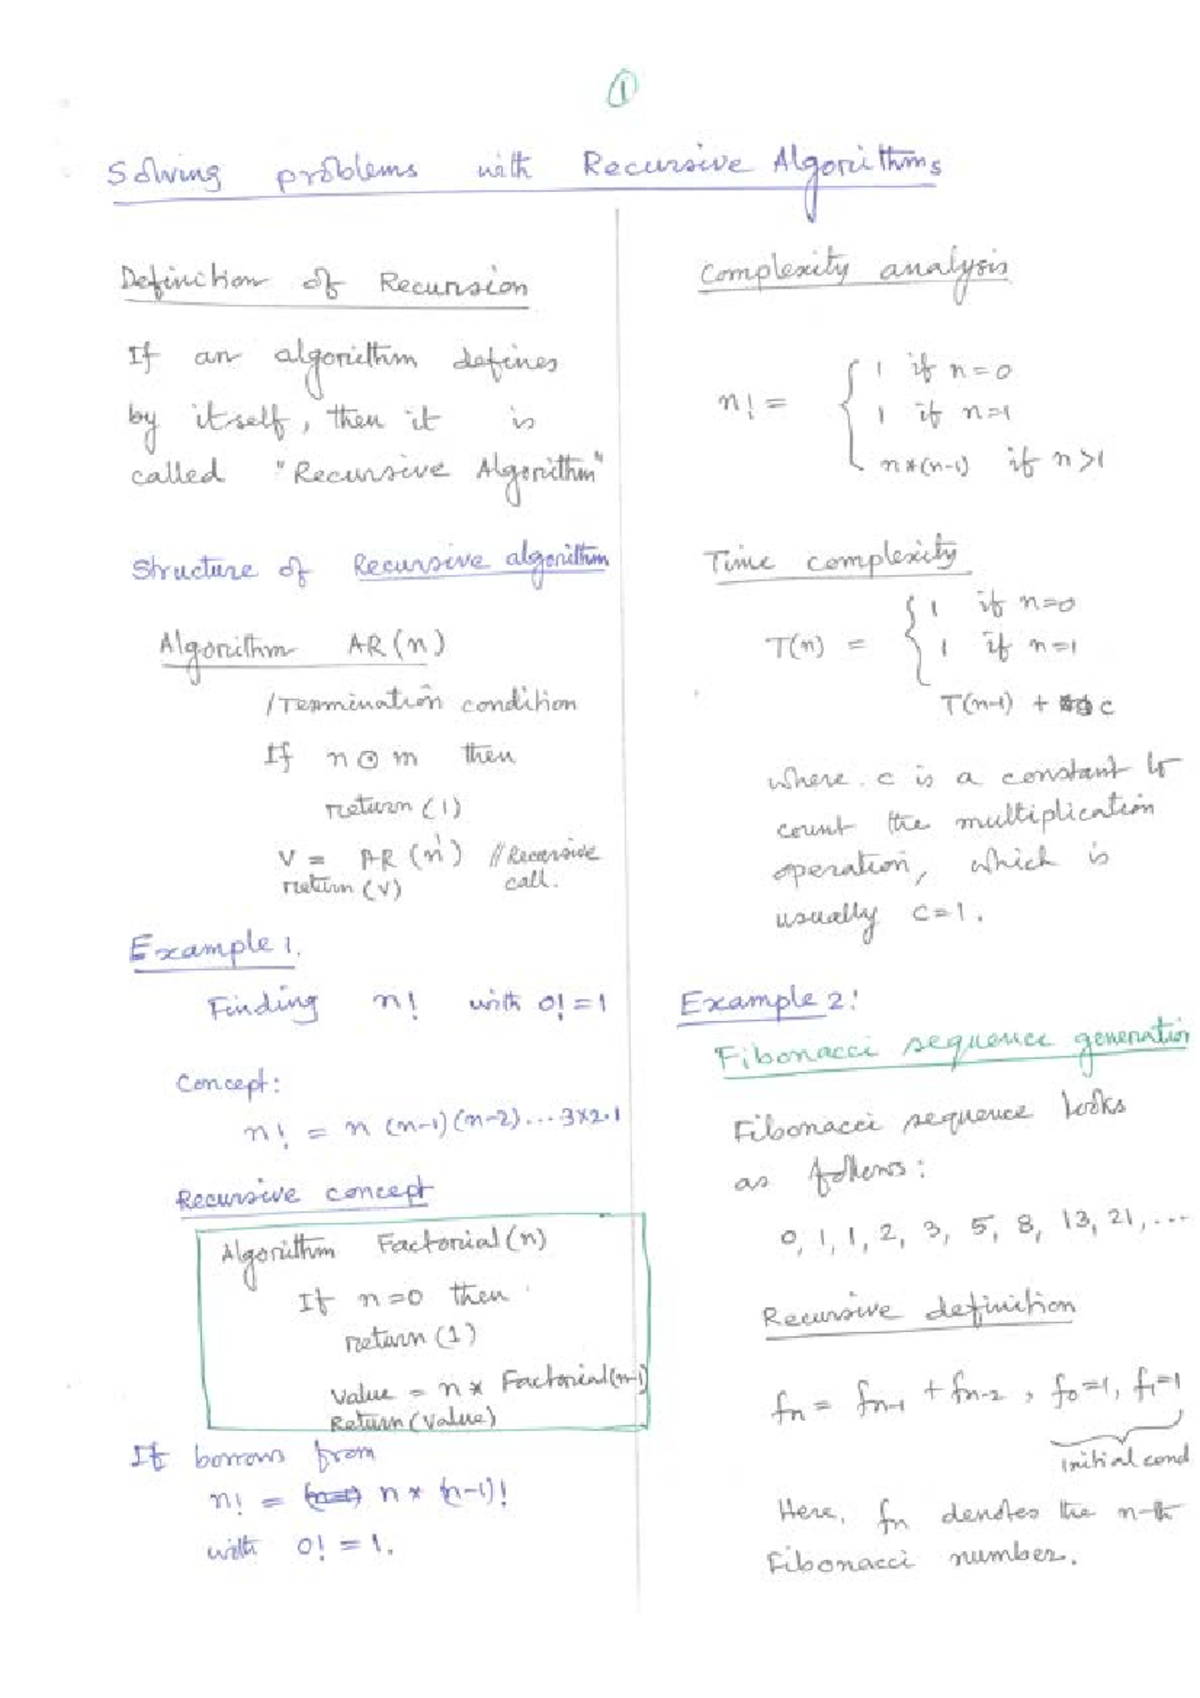 1
Solving problems with Recursive Algorithms
Definition of Recursion
If an algorithm defines
by itself, then it is
called "Recursive Algorithm"
Structure of Recursive algorithm
Algorithm AR(n)
/Termination condition
If n ⊙ m then
return (1)
V = AR(n') //Recursive
return (v) call.
Example 1.
Finding n! with 0! = 1
Concept:
n! = n (n-1)(n-2)...3×2.1
Recursive concept
Algorithm Factorial(n)
If n=0 then
return (1)
Value = n * Factorial(n-1)
Return (Value)
It borrows from
n! = n * (n-1)!
with 0! = 1.
Complexity analysis
n! = { 1 if n=0
1 if n=1
n*(n-1) if n>1
Time complexity
T(n) = { 1 if n=0
1 if n=1
T(n-1) + c
where c is a constant to
count the multiplication
operation, which is
usually c=1.
Example 2:
Fibonacci sequence generation
Fibonacci sequence looks
as follows:
0, 1, 1, 2, 3, 5, 8, 13, 21, ...
Recursive definition
fn = fn-1 + fn-2 , f0=1, f1=1
initial cond
Here, fn denotes the n-th
Fibonacci number.